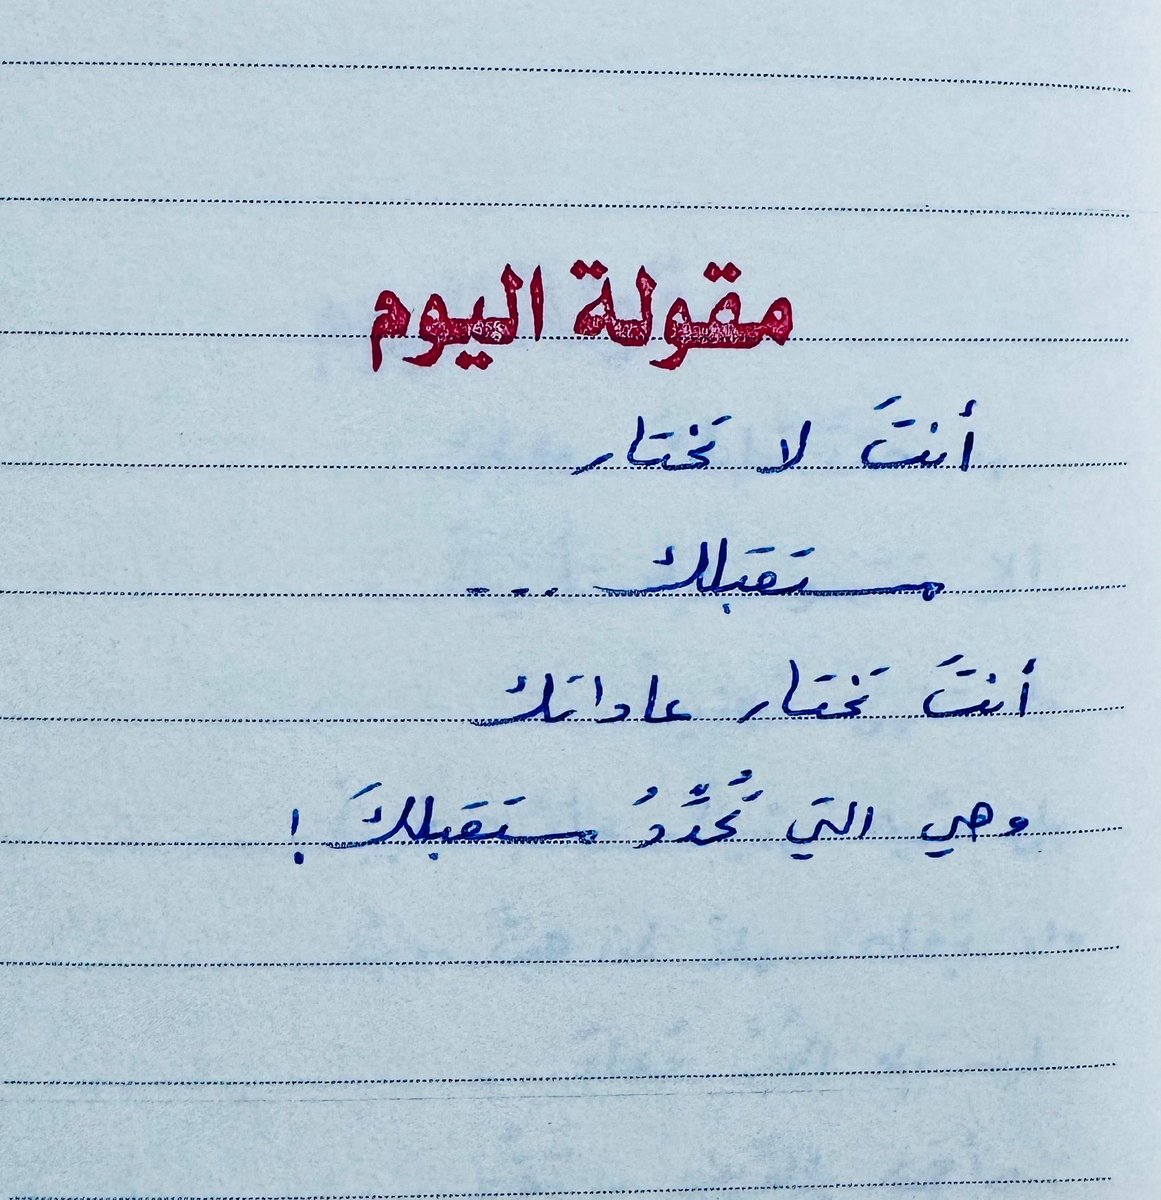 مقولة اليوم
أنتَ لا تختار
مستقبلك ...
أنتَ تختار عاداتك
وهي التي تُحدِّدُ مستقبلكَ !